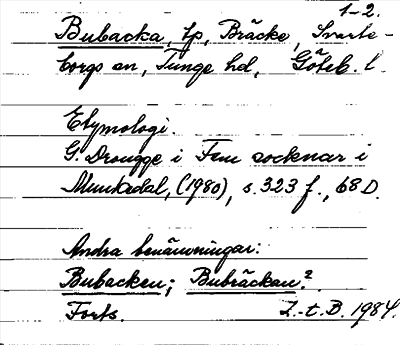 1-2.
Bubacka, tp, Bräcke, Svarte-
borgs sn, Tunge hd, Göteb. l.
Etymologi.
G. Drougge i Fem socknar i
Munkedal, (1980), s. 323 f., 68 D.
Andra benämningar:
Bubacken; Bubräckan?
Forts. I.-t. B. 1984.